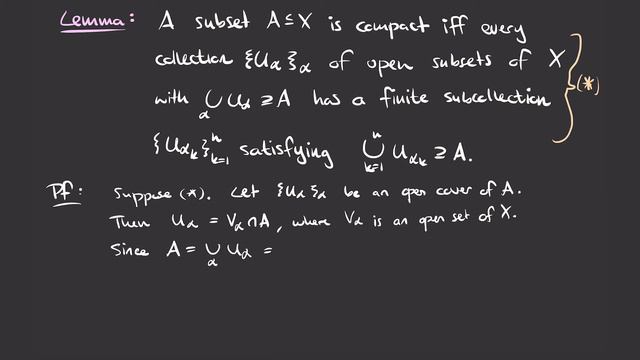 Lemma: A subset A ⊆ X is compact iff every
collection {Uα}α of open subsets of X
with ∪α Uα ⊇ A has a finite subcollection (*)
{Uαₖ}ⁿₖ₌₁ satisfying ⋃ⁿₖ₌₁ Uαₖ ⊇ A.
Pf: Suppose (*). Let {Uα}α be an open cover of A.
Then Uα = Vα ∩ A, where Vα is an open set of X.
Since A = ∪α Uα =